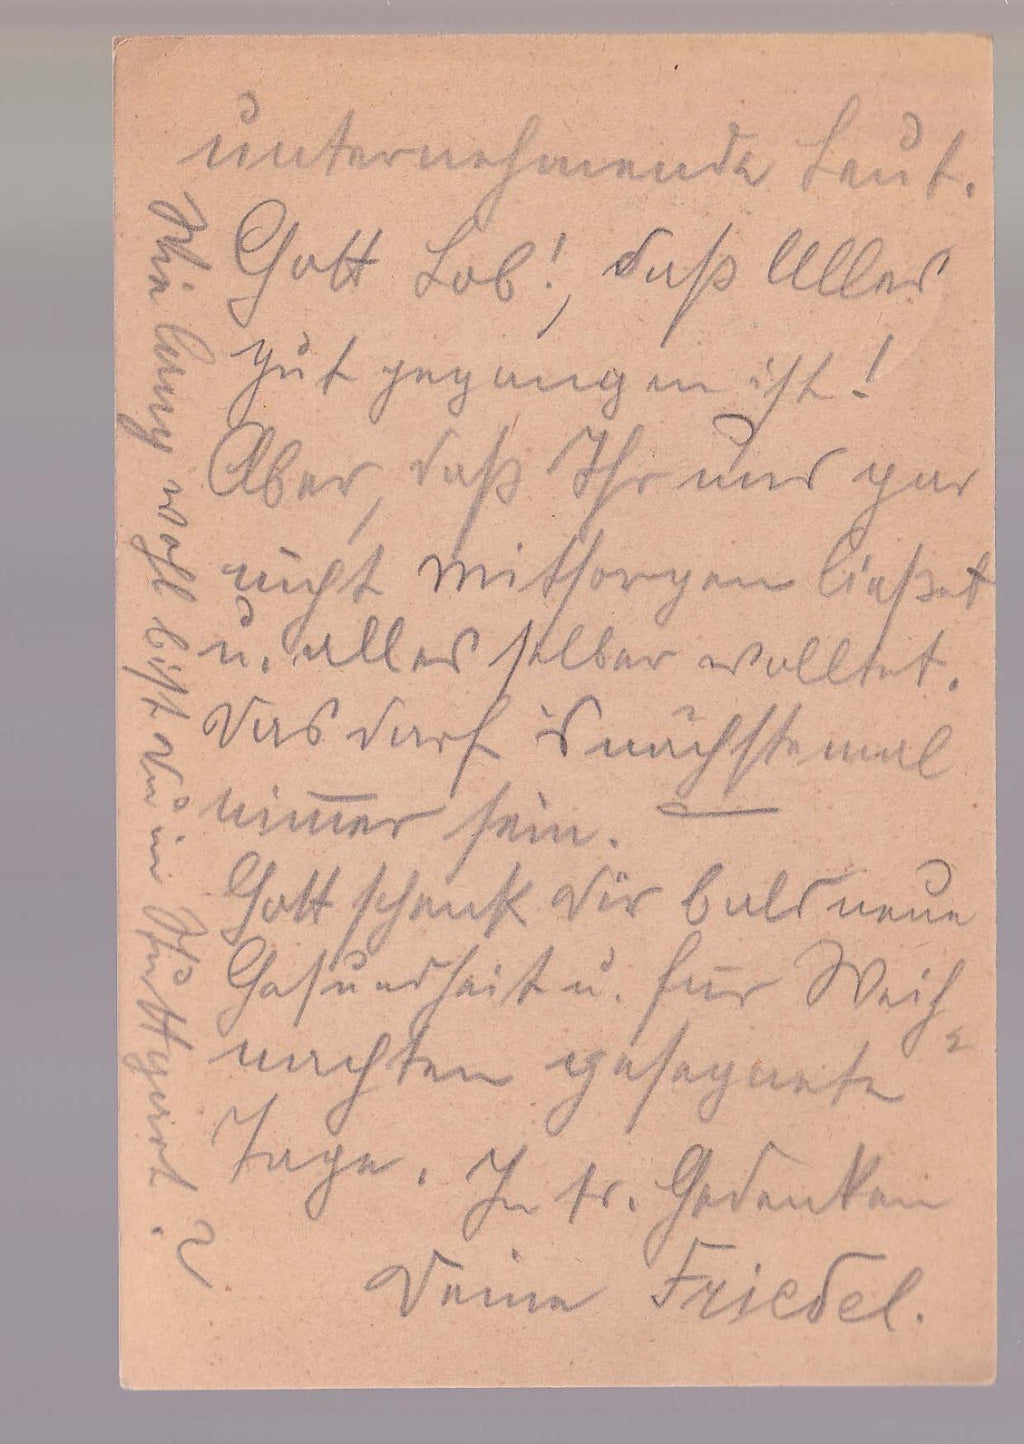 unternehmende Leut.
Gott Lob!, daß Alles
gut gegangen ist!
Aber, daß Ihr uns gar
nicht mitsorgen ließet
u. alles selber wolltet.
Das darf 's nächstemal
nimmer sein. —
Gott schenk Dir bald neue
Gesundheit u. für Weih-
nachten gesegnete
Tage. In tr. Gedenken
Deine Friedel.
Wie lang wohl bist Du in Stuttgart?